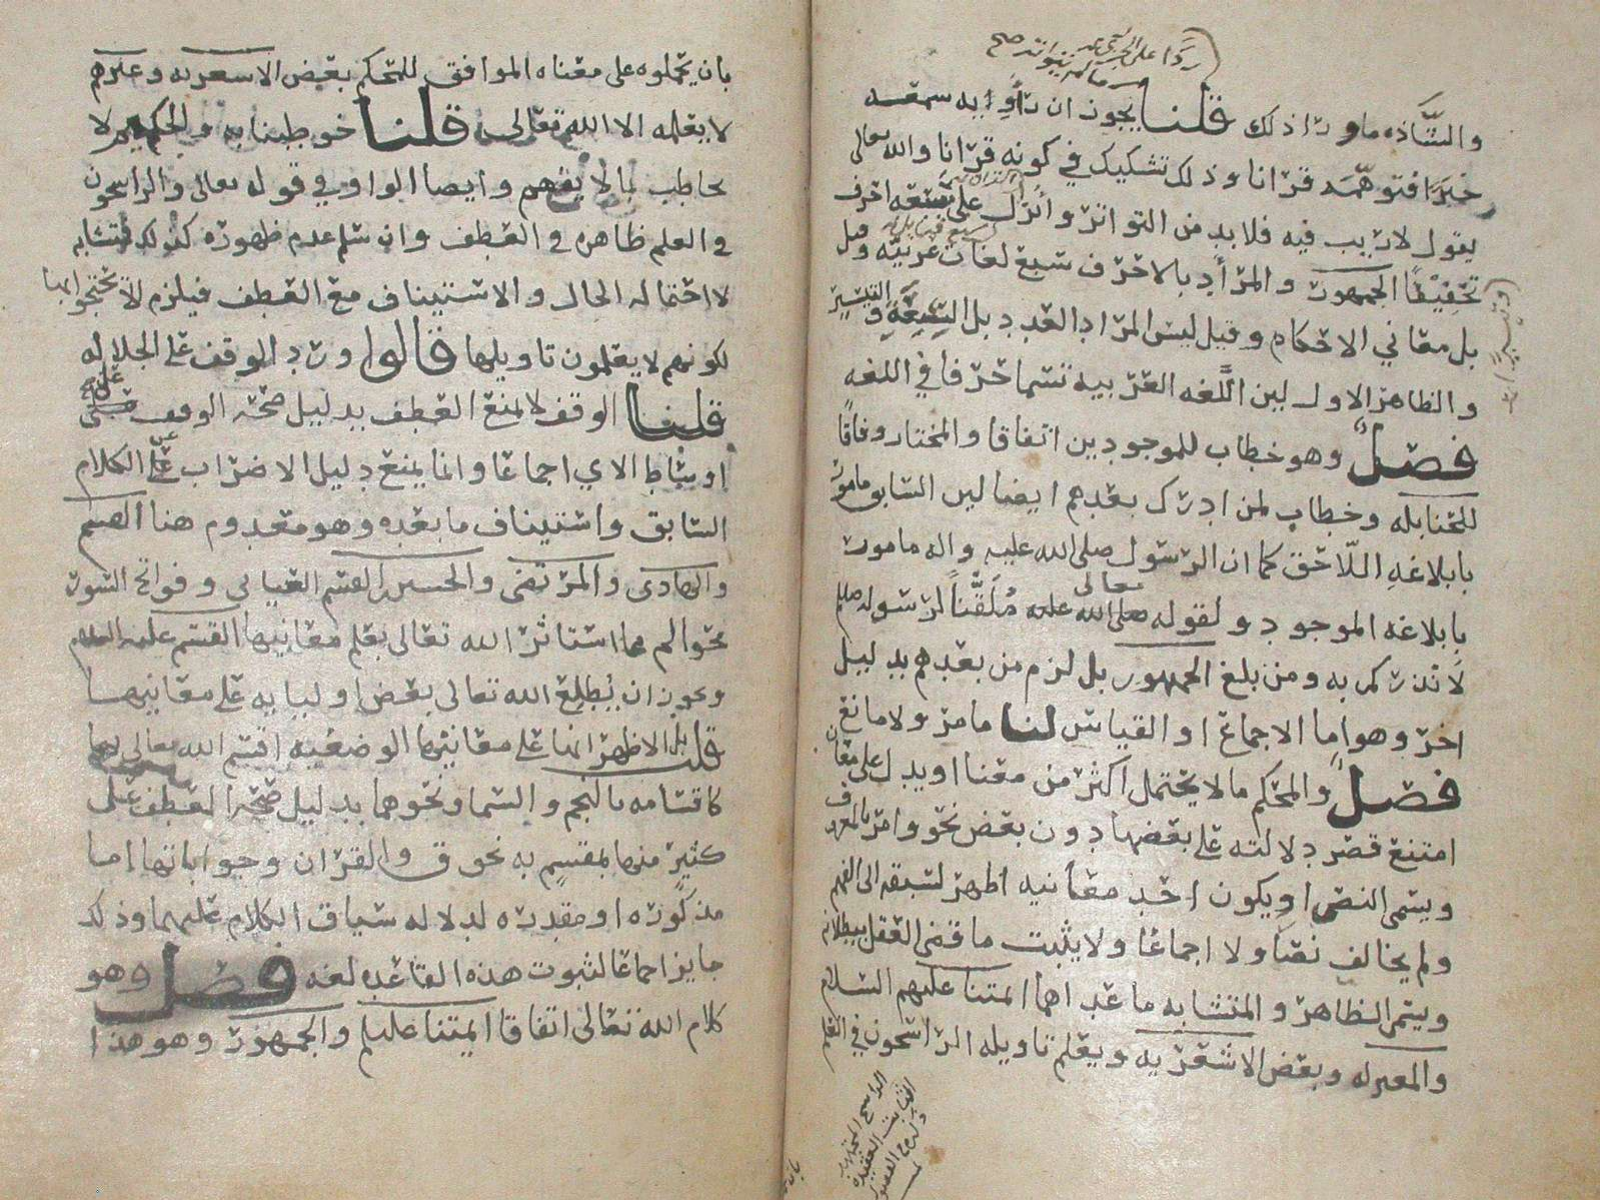 والشاذه ما ورا ذلك قلنا يجوز ان راويه سمعه
خبرا فتوهمه قرانا وذلك تشكيك في كونه قرانا والله تعالى
يقول لا ريب فيه فلا بد من التواتر وانزل على سبعه احرف
تخفيفا الجمهور والمراد بالاحرف سبع لغات عربيه وقيل
بل معاني الاحكام وقيل ليس المراد العدد بل السعة والتيسير
والظاهر الاول لين اللغه العربيه تسما حرفا في اللغه
فصل وهو خطاب للموجودين اتفاقا والمختار وفاقا
للحنابله وخطاب لمن ادرك بعدهم ايضا لين السابق مامور
بابلاغه اللاحق كما ان الرسول صلى الله عليه واله مامور
بابلاغه الموجود ولقوله تعالى ملقنا لرسوله صلعم
لانذركم به ومن بلغ الجمهور بل لزم من بعدهم بدليل
اخر وهو اما الاجماع او القياس لنا ما مر ولا مانع
فصل والمحكم ما لا يحتمل اكثر من معنا او يدل على معان
امتنع قصر دلالته على بعضها دون بعض نحو وامر بالعرف
ويسمى النص او يكون احد معانيه اظهر لسبقه الى الفهم
ولم يخالف نصا ولا اجماعا ولا يثبت ما قضى العقل ببطلانه
ويسمى الظاهر والمتشابه ما عداهما ائمتنا عليهم السلام
والمعتزله وبعض الاشعريه ويعلم تاويله الراسخون في العلم
بان يحملوه على معناه الموافق للمحكم بعض الاسعريه وغيرهم
لا يعلمه الا الله تعالى قلنا خوطبنا به والحكيم لا
يخاطب بما لا يفهم وايضا الواو في قوله تعالى والراسخون
في العلم ظاهره في العطف وان سلم عدم ظهوره كذلك فمتشابه
لاحتماله الحال والاستيناف مع العطف فيلزم الا تحتجوا بها
لكونهم لا يعلمون تاويلها قالوا ورد الوقف على الجلاله
قلنا الوقف لا يمنع العطف بدليل صحة الوقف على
اوساط الاي اجماعا وانما يمنع دليل الاضراب عن الكلام
السابق واستيناف ما بعده وهو معدوم هنا القسم
والهادى والمرتضى والحسين بن القسم العياني وفواتح السور
نحو الم مما استاثر الله تعالى بعلم معانيها القسم عليه السلام
ويجوز ان يطلع الله تعالى بعض اوليايه على معانيها
قلنا بل الاظهر انها على معانيها الوضعيه اقسم الله تعالى بها
كاقسامه بالنجم والسما ونحوهما بدليل صحة العطف على
كثير منها بمقسم به نحو ق والقران وجواباتها اما
مذكوره او مقدره لدلاله سياق الكلام عليها وذلك
جايز اجماعا لثبوت هذه القاعده لغه فصل وهو
كلام الله تعالى اتفاقا ايمتنا عليلم والجمهور وهو هذا